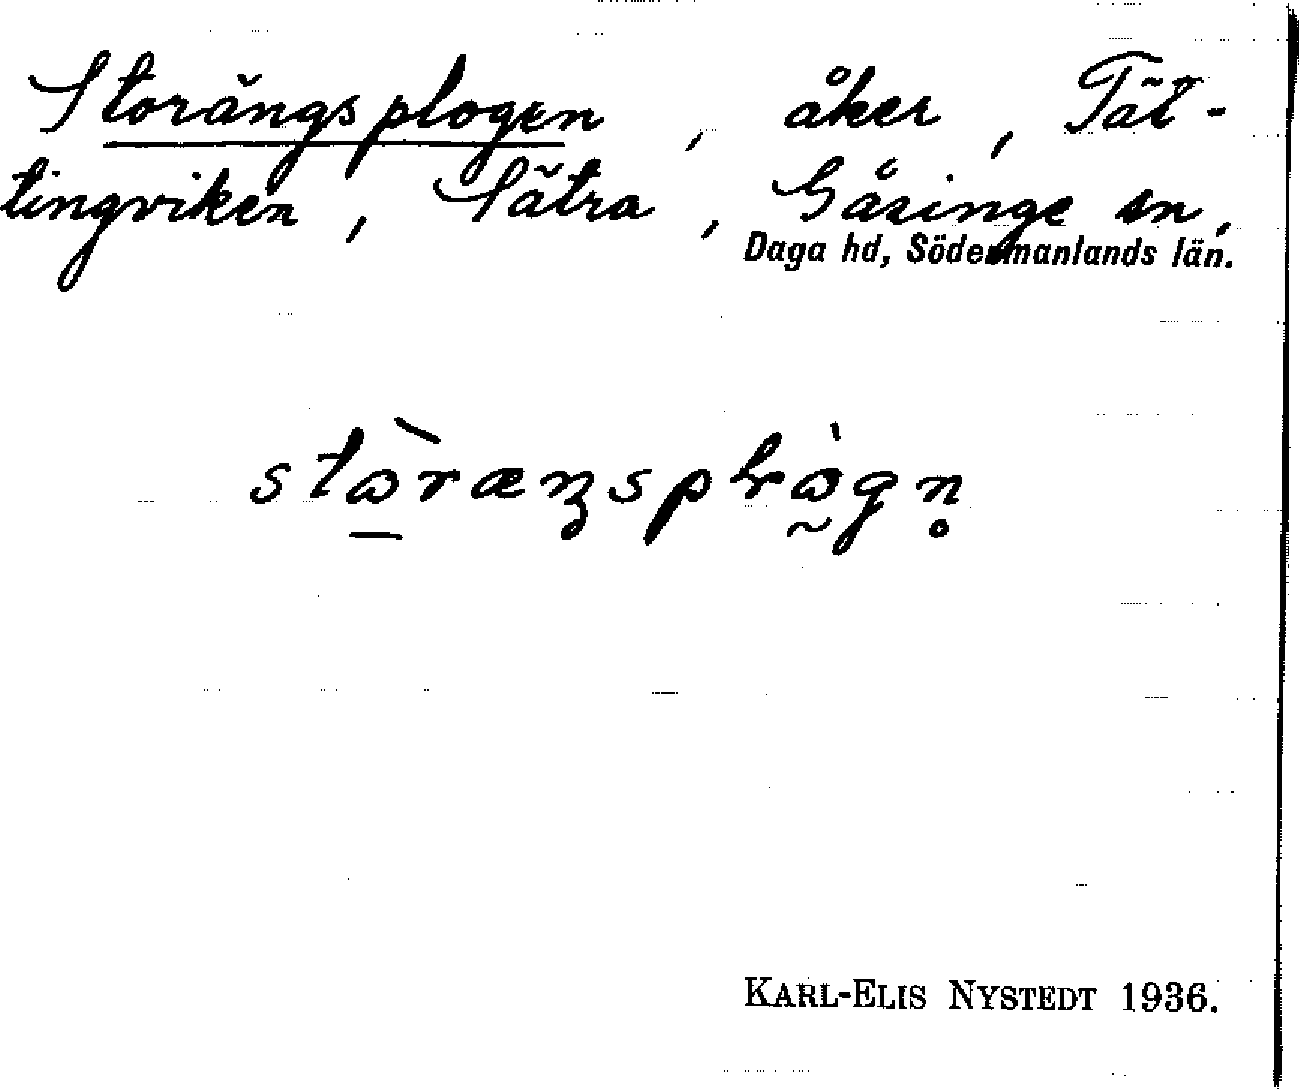 Storängsplogen, åker, Tät-
tingviken, Sätra, Gåsinge sn,
Daga hd, Södermanlands län.
stɷ̀ræŋsplɷ̀gn̥
KARL-ELIS NYSTEDT 1936.